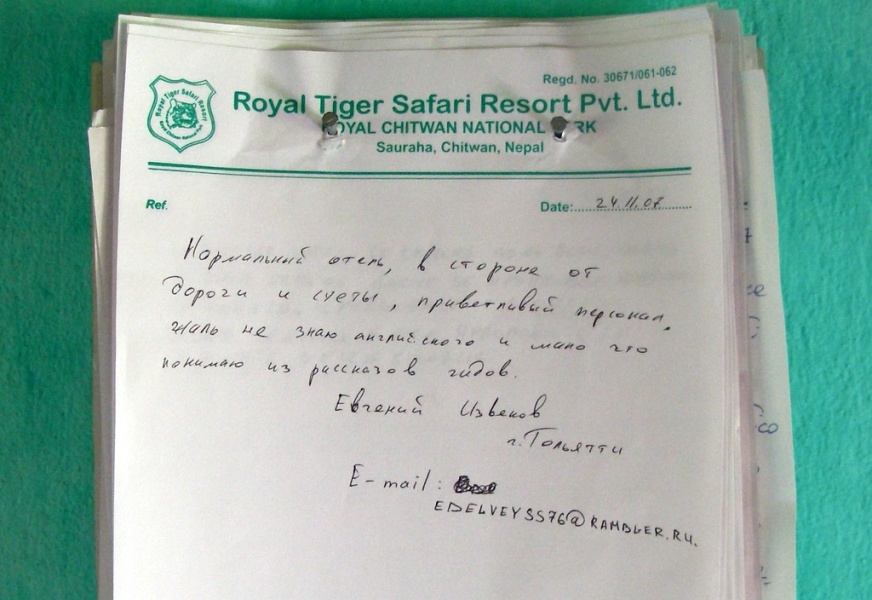 Regd. No. 30671/061-062
Royal Tiger Safari Resort
Royal Chitwan National Park
Royal Tiger Safari Resort Pvt. Ltd.
ROYAL CHITWAN NATIONAL PARK
Sauraha, Chitwan, Nepal
Ref.
Date: 24.11.07
Нормальный отель, в стороне от
дороги и суеты, приветливый персонал,
жаль не знаю английского и мало что
понимаю из рассказов гидов.
Евгений Извеков
г. Тольятти
E-mail:
EDELVEYSS76@RAMBLER.RU.